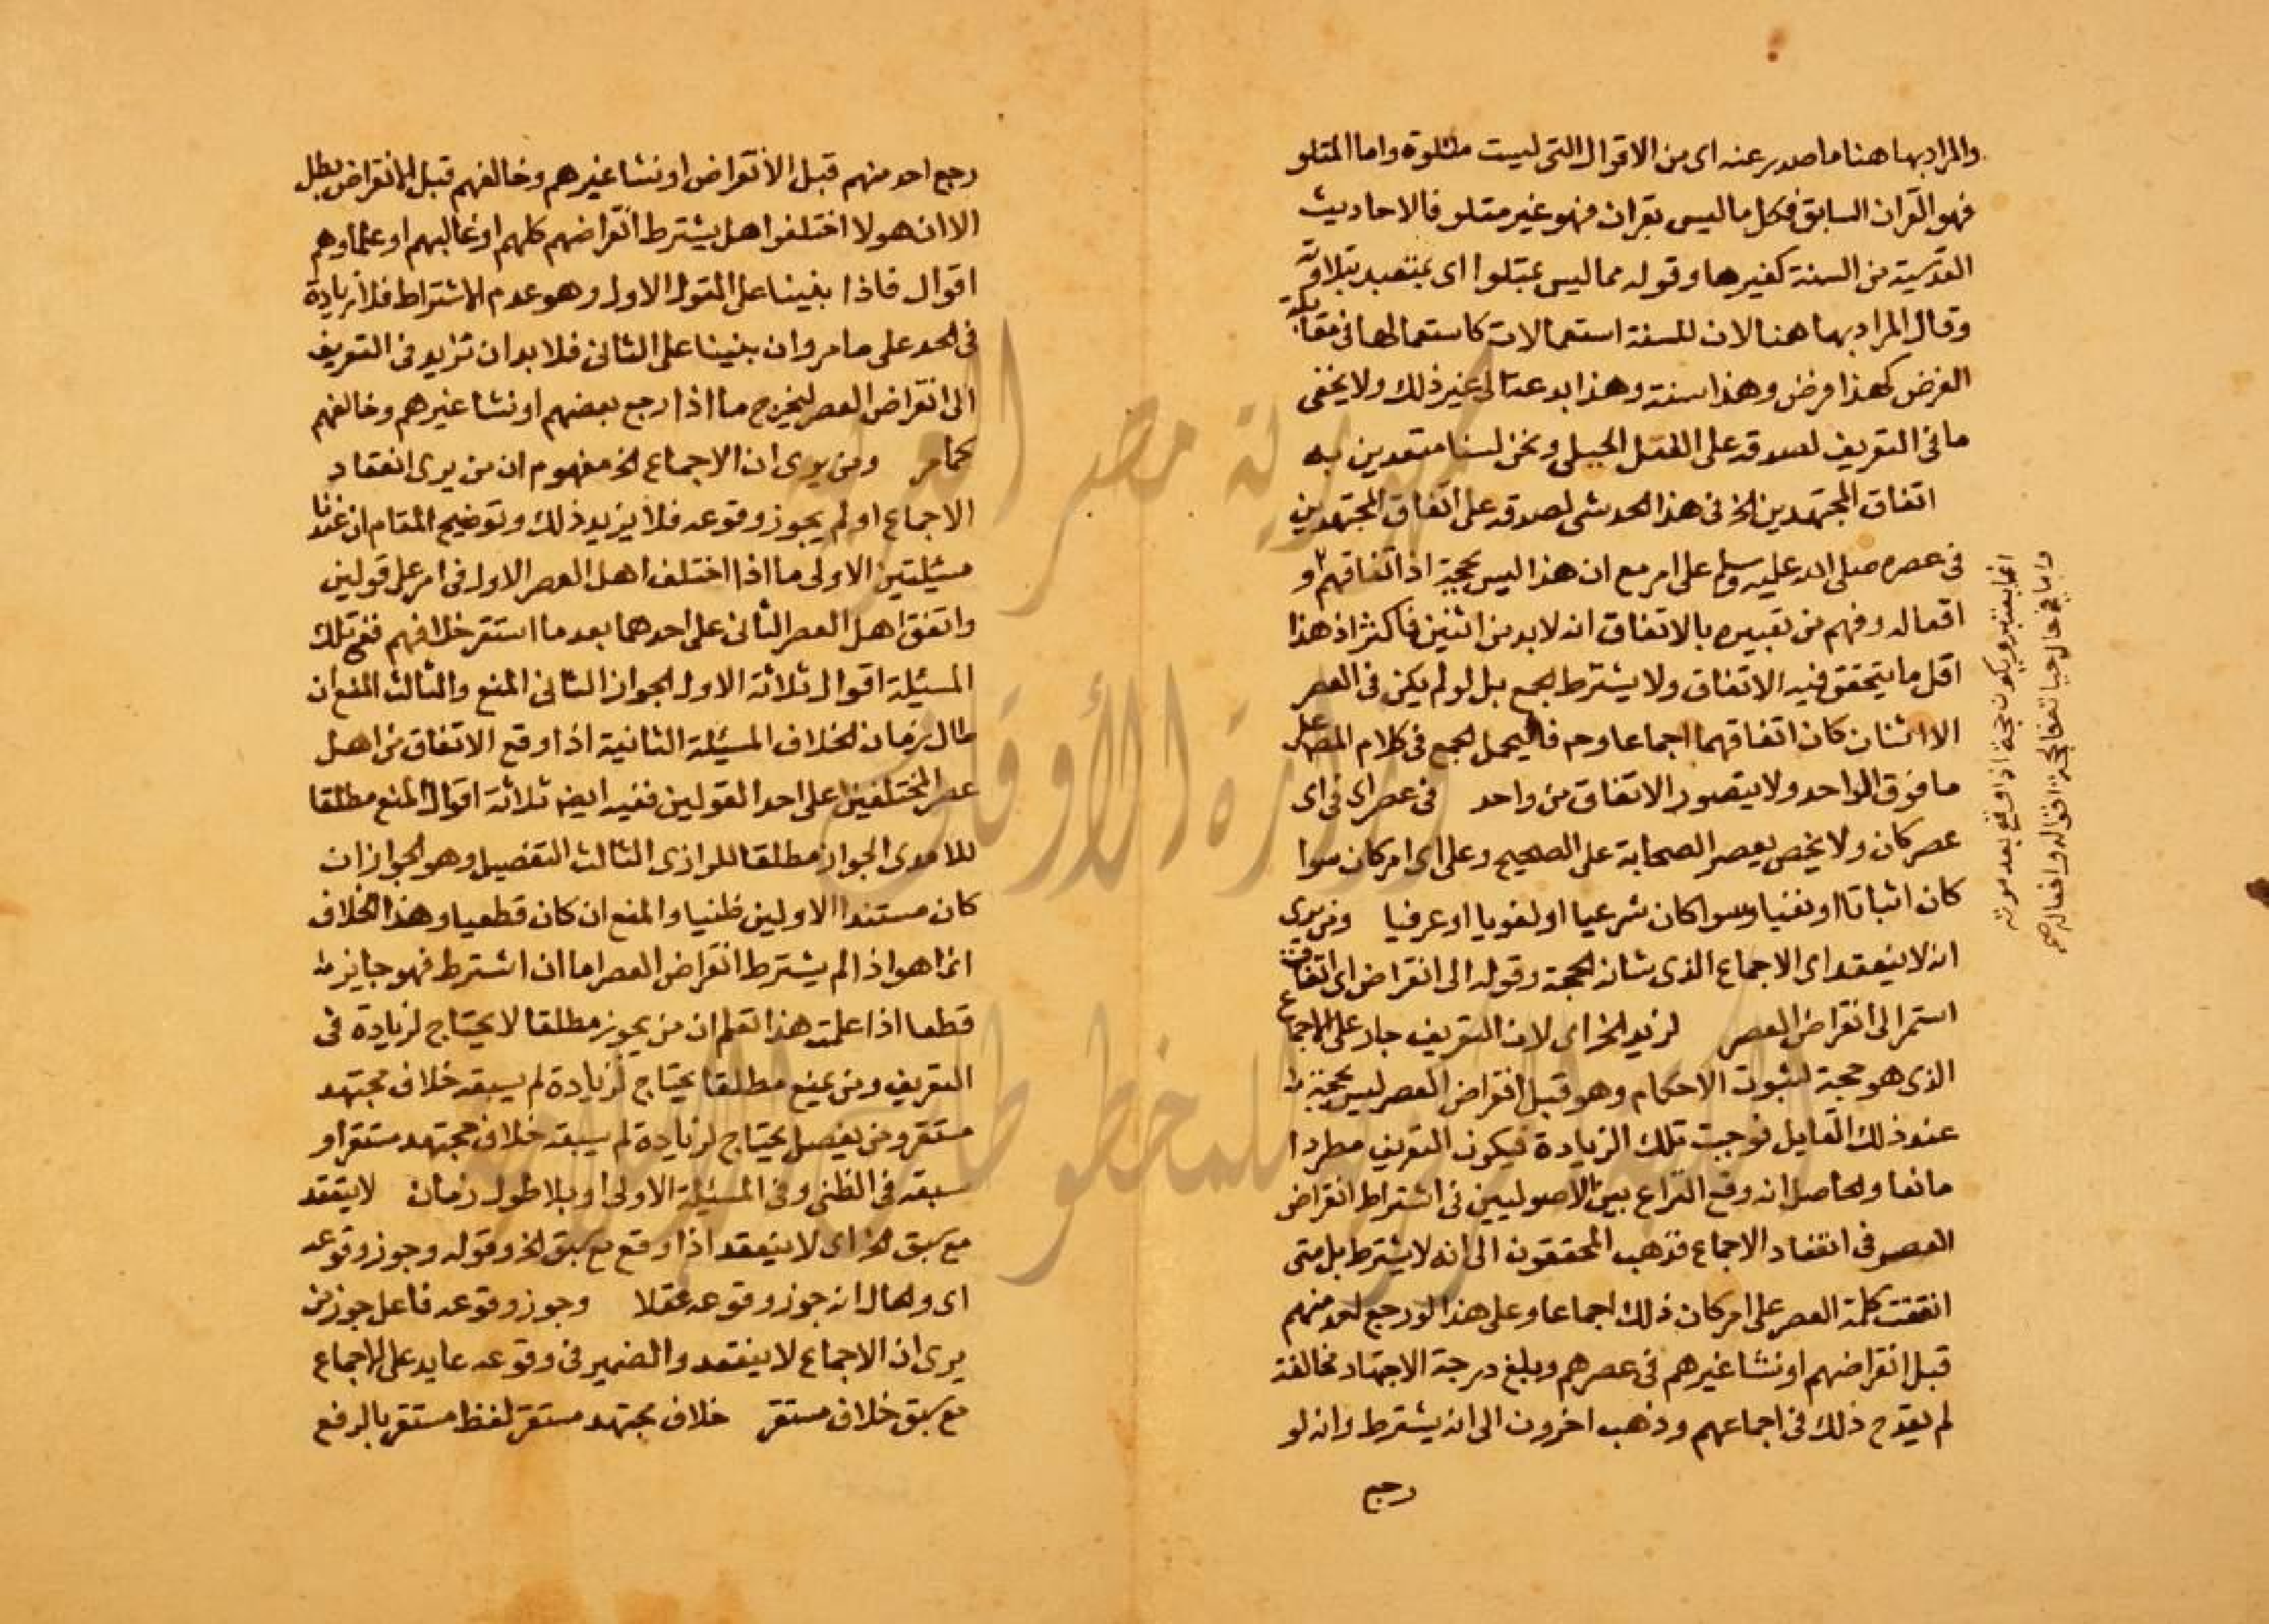 والمراد بها هنا ما صدر عنه اى من الاقوال التى ليست متلوة واما المتلو
فهو القران السابق فكل ما ليس بقران فهو غير متلو فالاحاديث
القدسية من السنة كغيرها وقوله مما ليس بمتلوا اى بمتعبد بتلاوته
وقال المراد بها هنا لان للسنة استعمالات كاستعمالها فى مقابلة
الفرض كهذا فرض وهذا سنة وهذا بدعة الى غير ذلك ولا يخفى
ما فى التعريف لصدقه على الفعل الجبلى ونحن لسنا متعبدين به
اتفاق المجتهدين الخ فى هذا الحد شى لصدقه على اتفاق المجتهدين
فى عصره صلى الله عليه وسلم على امر مع ان هذا ليس بحجة اذ اتفاقهم او
افعاله وفهم من تعبيره بالاتفاق انه لا بد من اثنين فاكثر اذ هذا
اقل ما يتحقق فيه الاتفاق ولا يشترط الجمع بل لو لم يكن فى العصر
الا اثنان كان اتفاقهما اجماعا وح فاليحمل الجمع فى كلام المص على
ما فوق الواحد ولا يتصور الاتفاق من واحد فى عصر اى فى اى
عصر كان ولا يخص بعصر الصحابة على الصحيح وعلى اى امر كان سوا
كان اثباتا او نفيا وسوا كان شرعيا او لغويا او عرفيا ومن يرى
انه لا ينعقد اى الاجماع الذى شانه الحجة وقوله الى انقراض اى اتفاق
استمر الى انقراض العصر لزيد الخ اى لان التعريف جار على الاجماع
الذى هو حجة لثبوت الاحكام وهو قبل انقراض العصر ليس بحجة
عند ذلك القايل فوجبت تلك الزيادة فيكون التعريف مطردا
مانعا والحاصل انه وقع النزاع بين الاصوليين فى اشتراط انقراض
العصر فى انعقاد الاجماع فذهب المحققون الى انه لا يشترط بل متى
اتفقت كلمة العصر على امر كان ذلك اجماعا وعلى هذا لو رجع احد منهم
قبل انقراضهم او نشا غيرهم فى عصرهم وبلغ درجة الاجتهاد فخالفته
لم يقدح ذلك فى اجماعهم وذهب اخرون الى انه يشترط وانه لو
رجع
انما يعتبر ويكون حجة اذا وقع بعد موته
واما فى حال حياته فالحجة اقواله وافعاله صح
رجع احد منهم قبل الانقراض او نشا غيرهم وخالفهم قبل الانقراض بطل
الا ان هولا اختلفوا هل يشترط انقراضهم كلهم او غالبهم او علماوهم
اقوال فاذا بنينا على القول الاول وهو عدم الاشتراط فلا زيادة
فى الحد على ما مر وان بنينا على الثانى فلا بد ان تزيد فى التعريف
الى انقراض العصر ليخرج ما اذا رجع بعضهم او نشا غيرهم وخالفهم
كما مر ومن يرى ان الاجماع الخ مفهوم ان من يرى انعقاد
الاجماع او لم يجوز وقوعه فلا يزيد ذلك وتوضيح المقام ان عندنا
مسئلتين الاولى ما اذا اختلف اهل العصر الاول فى امر على قولين
واتفق اهل العصر الثانى على احدهما بعد ما استقر خلافهم ففى تلك
المسئلة اقوال ثلاثة الاول الجواز الثانى المنع والثالث المنع ان
طال زمان الخلاف المسئلة الثانية اذا وقع الاتفاق من اهل
عصر المختلفين على احد القولين ففيه ايض ثلاثة اقوال المنع مطلقا
للامدى الجواز مطلقا للرازى الثالث التفصيل وهو الجواز ان
كان مستند الاولين ظنيا والمنع ان كان قطعيا وهذا الخلاف
انما هو اذا لم يشترط انقراض العصر اما ان اشترط فهو جايز
قطعا اذا علمت هذا تعلم ان من يجوز مطلقا لا يحتاج لزيادة فى
التعريف ومن يمنع مطلقا يحتاج لزيادة لم يسبقه خلاف مجتهد
مستقر ومن يفصل يحتاج لزيادة لم يسبقه خلاف مجتهد مستقر او
سبقه فى الظنى وفى المسئلة الاولى او بلا طول زمان لا ينعقد
مع سبق الخ اى لا ينعقد اذا وقع مع سبق الخ وقوله وجوز وقوعه
اى والحال انه جوز وقوعه عقلا وجوز وقوعه فاعل جوز من
يرى ان الاجماع لا ينعقد والضمير فى وقوعه عايد على الاجماع
مع سبق خلاف مستقر خلاف مجتهد مستقر لفظ مستقر بالرفع
جمهورية مصر العربية
وزارة الأوقاف